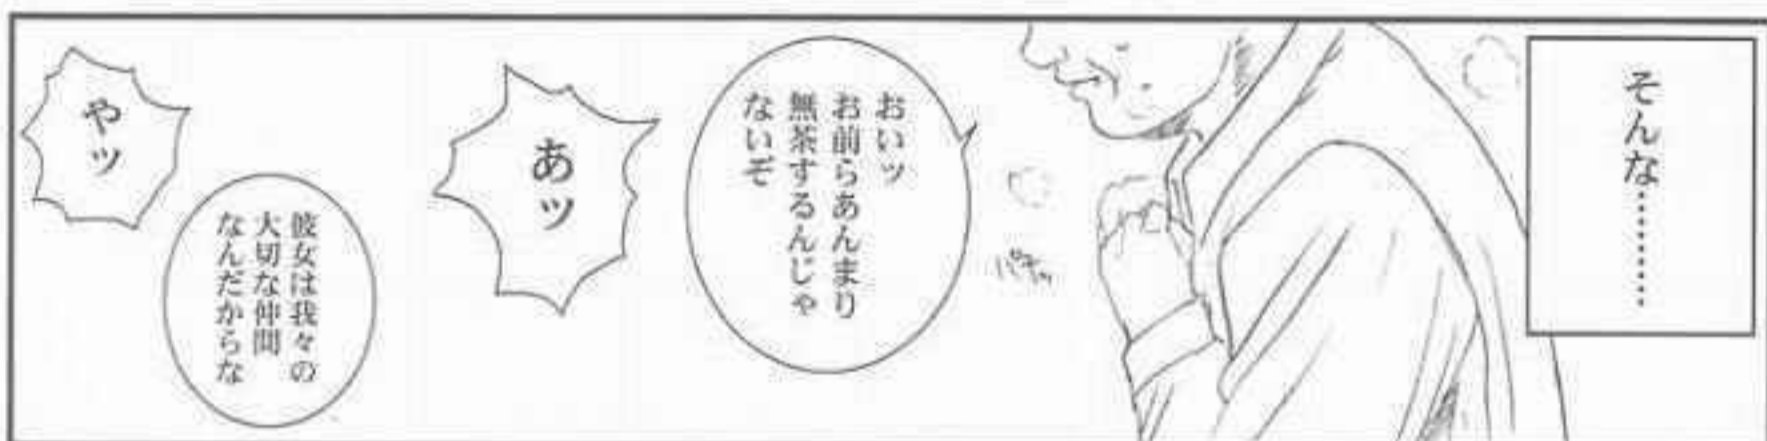 そんな………
おいッ
お前らあんまり
無茶するんじゃ
ないぞ
あッ
彼女は我々の
大切な仲間
なんだからな
やッ